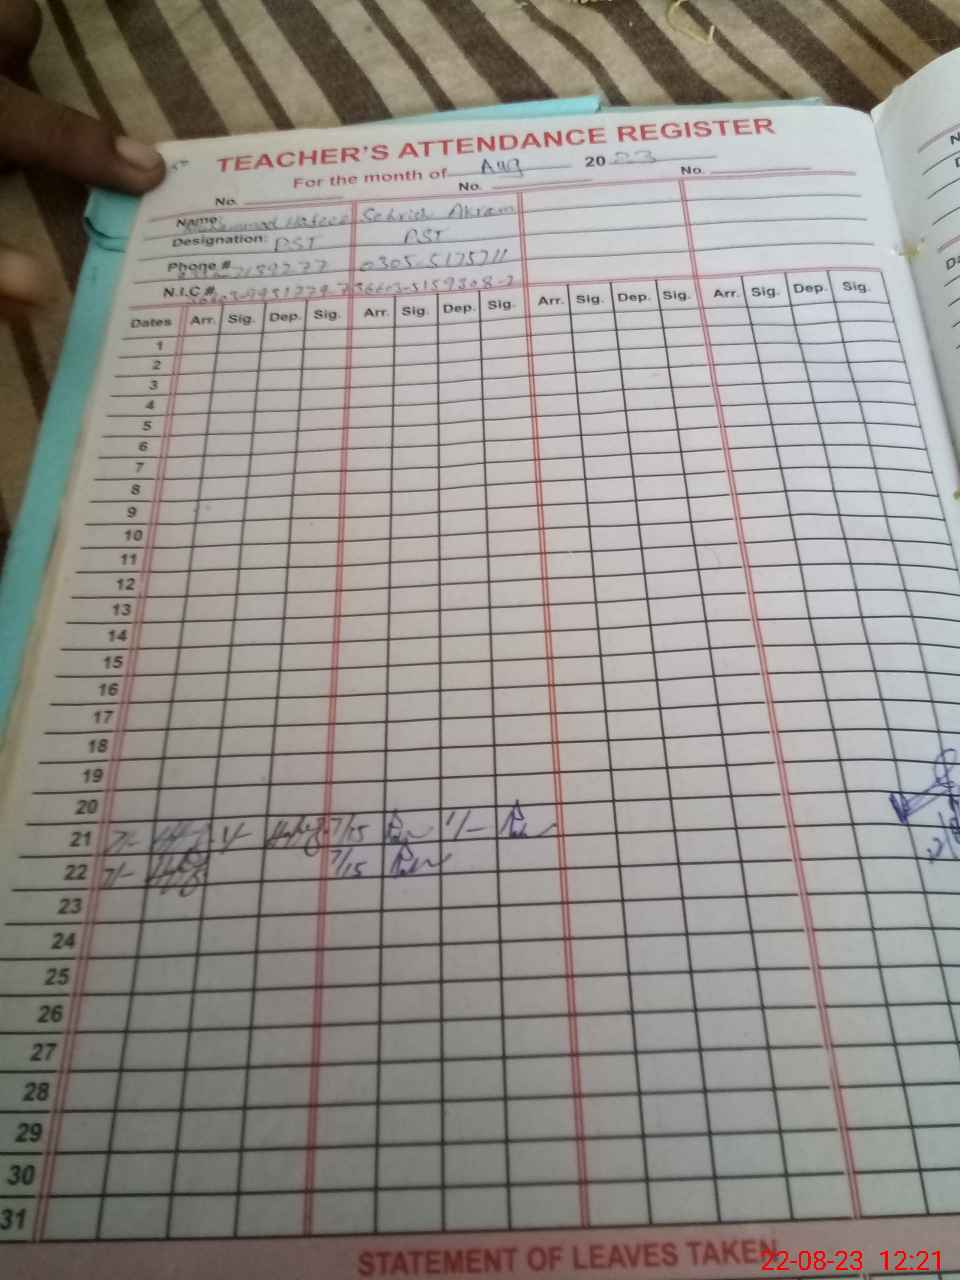 TEACHER'S ATTENDANCE REGISTER
For the month of Aug 2023
No. No. No.
Name: Muhammad Hafeez Sehrish Akram
Designation: PST PST
Phone # 0305-5175711
N.I.C #
Dates Arr. Sig. Dep. Sig. Arr. Sig. Dep. Sig. Arr. Sig. Dep. Sig. Arr. Sig. Dep. Sig.
1
2
3
4
5
6
7
8
9
10
11
12
13
14
15
16
17
18
19
20
21 7/- 1/- 7/15 1/-
22 7/- 7/15
23
24
25
26
27
28
29
30
31
STATEMENT OF LEAVES TAKEN
22-08-23 12:21